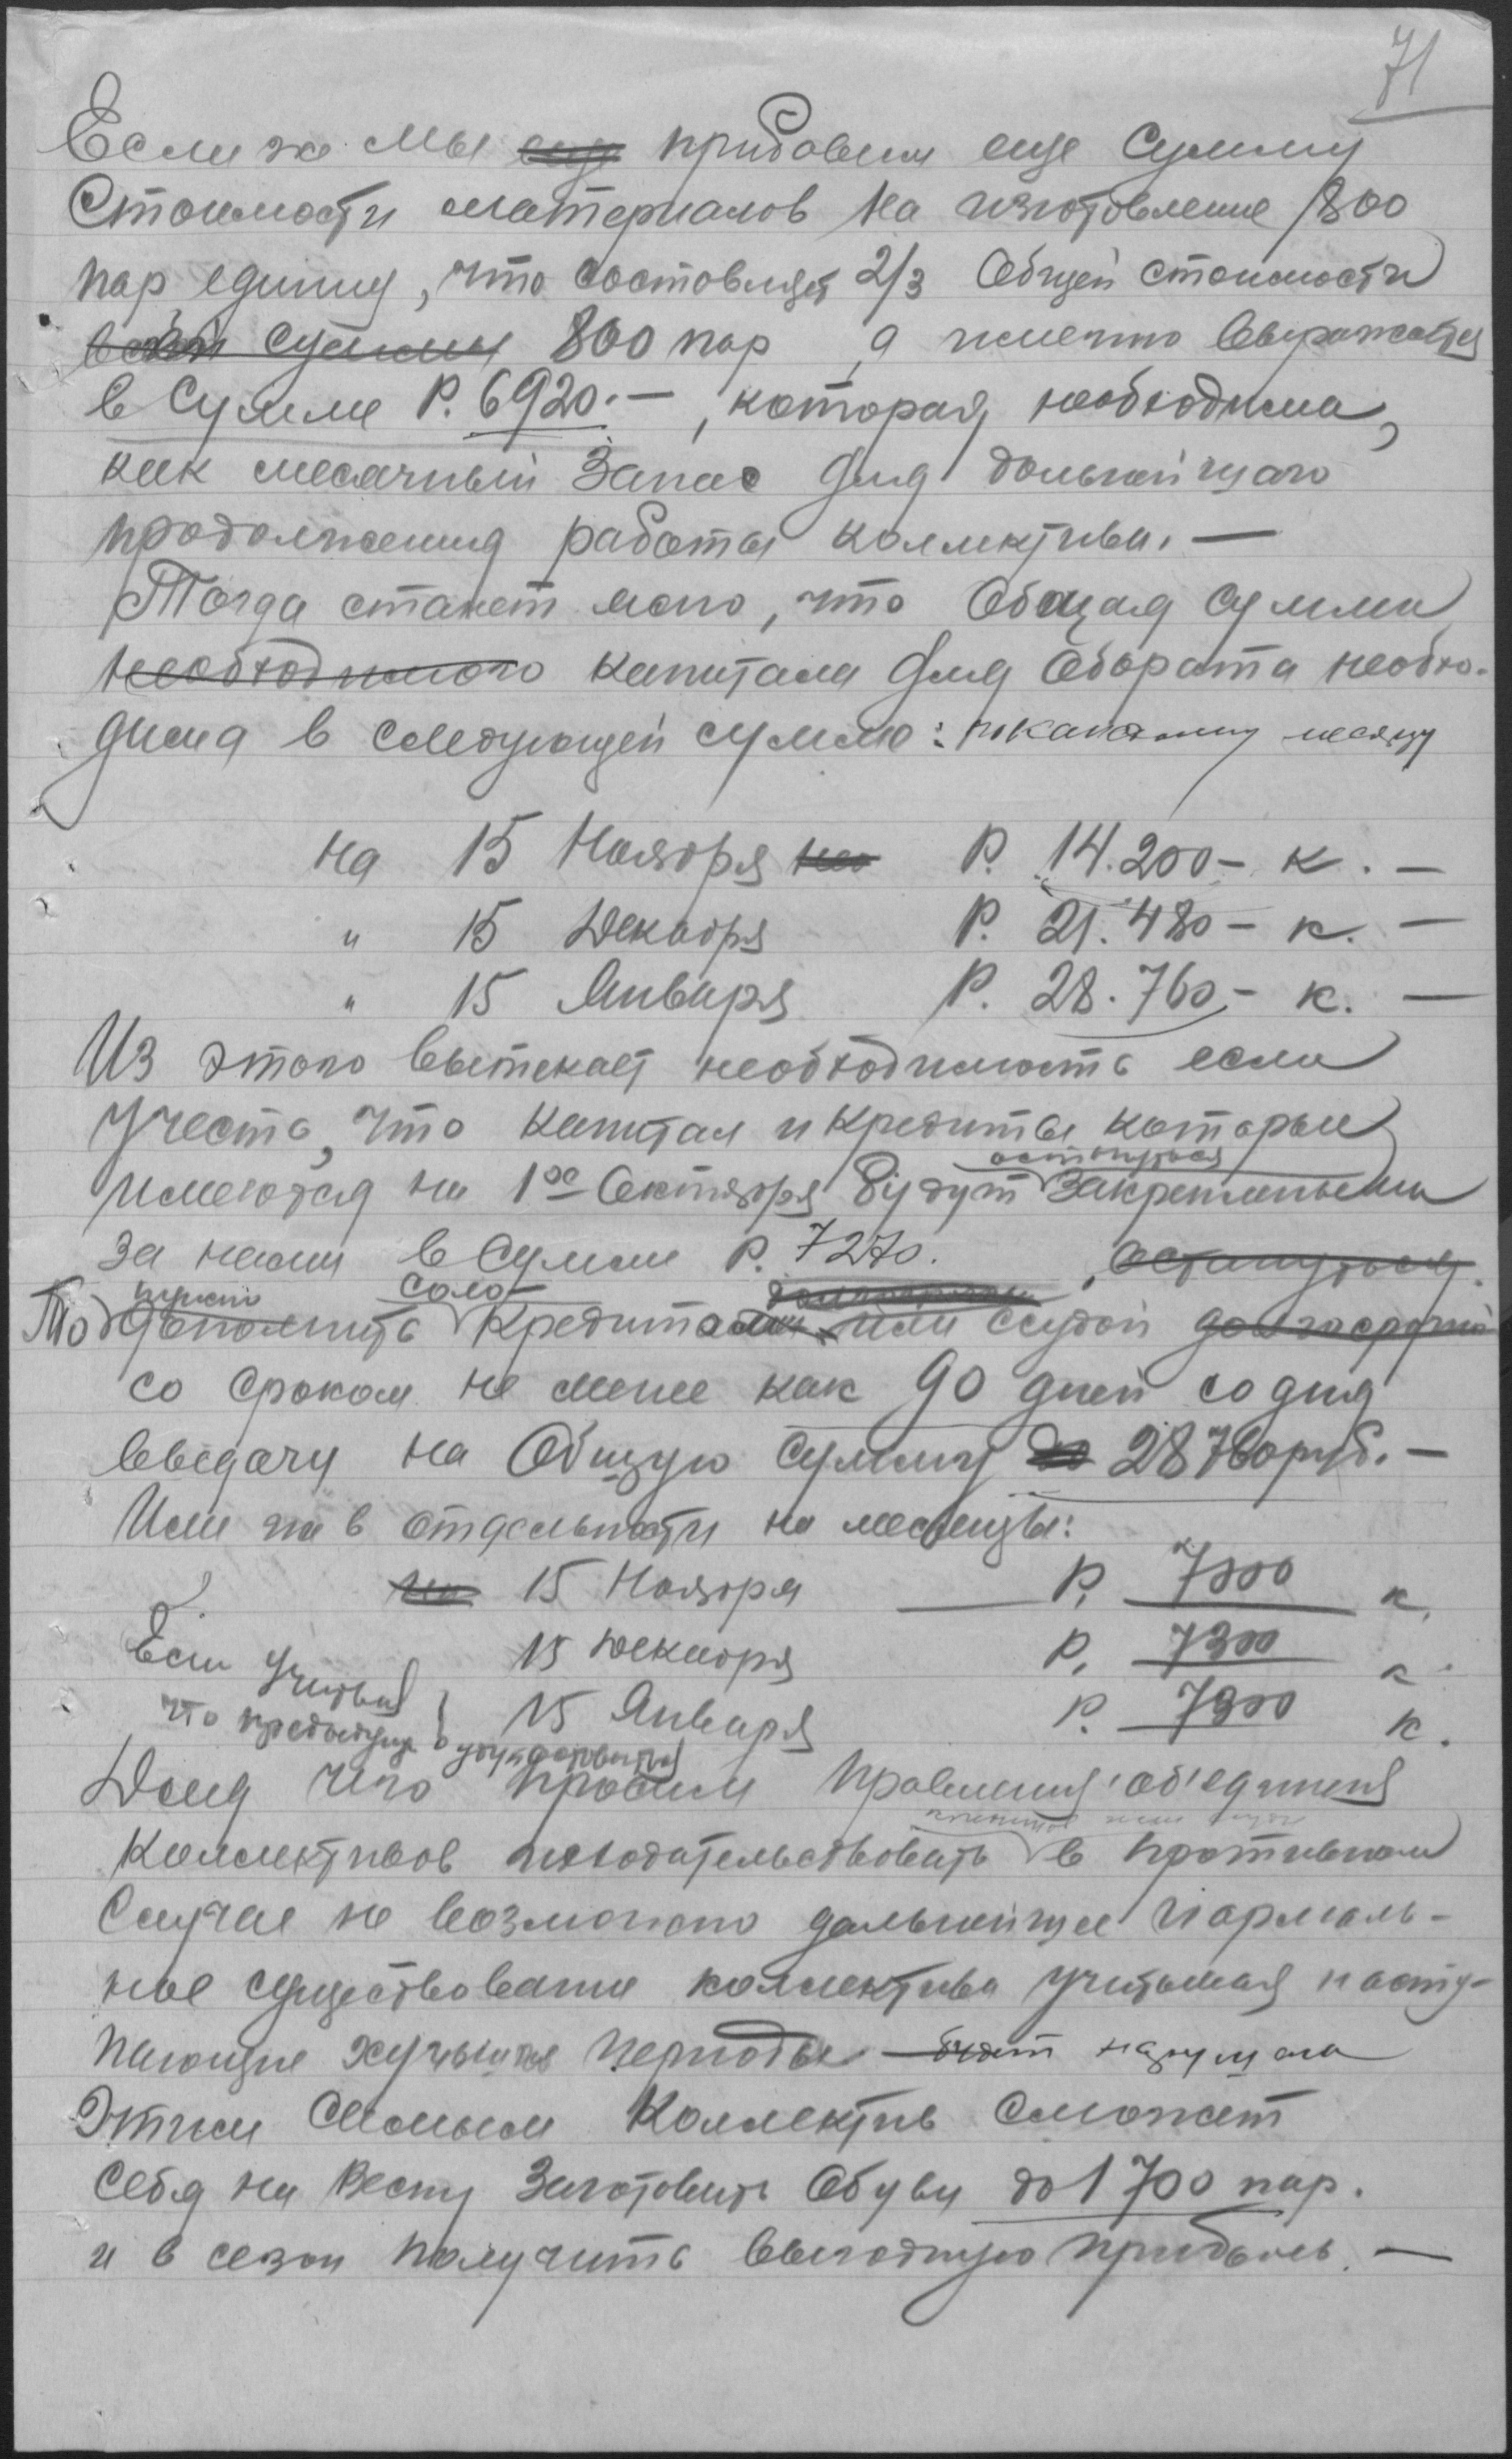 71
Если же мы еще придбавим еще сумму
Стоимости материалов на изготовление 800
пар единиц, что составляет 2/3 Общей стоимости
всей суммы 800 пар, а именно Выражается
в Сумме Р. 6920.—, которая необходима,
как месячный Запас для дальнейшаго
продолжения работы коллектива. —
Тогда станет ясно, что Общая сумма
необходимого капитала для Оборота необхо-
дима в следующей сумме: по каждому месяцу
на 15 Ноября на Р. 14.200 — к. —
" 15 Декабря Р. 21.480 — к. —
" 15 Января Р. 28.760 — к. —
Из этого Вытекает необходимость если
учесть, что капитал и кредиты которые
остануться
имеются на 1ое Октября будут Закрепленными
за нами в Сумме Р. 7270. , остануться.
соло-
То дополнить Кредитами или ссудой долгосрочной
со сроком не менее как 90 дней со дня
Выдачи на Общую Сумму до 28760 руб. —
Или же в отдельности на месяцы:
на 15 Ноября Р. 7300 к.
Если учитывая 15 Декабря Р. 7300 к.
что предыдущ. 15 Января Р. 7300 к.
Для чего просим Правления об'единения
Коллективов походатайствовать в противном
Случае не возможно дальнейшее нормаль-
ное существование коллектива учитывая насту-
пающие периоды — будет нарушена
Этим Самым Коллектив Сможет
себя на Весну Заготовить Обуви до 1700 пар.
и в сезон получить Выгодную прибыль. —